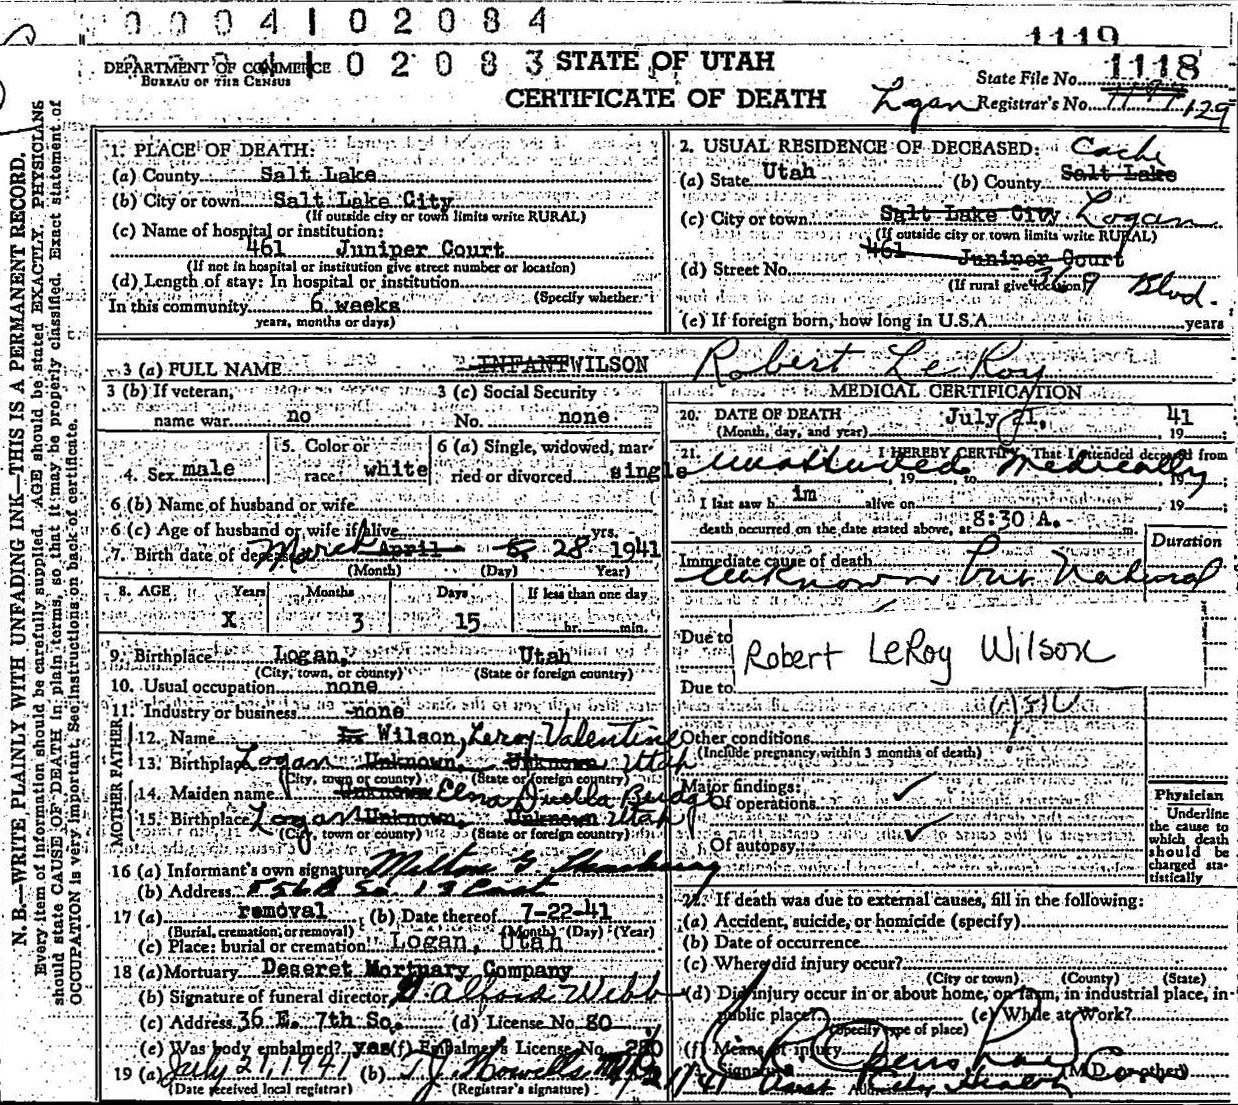 0 0 0 4 1 0 2 0 8 4
1119
0 0 0 4 1 0 2 0 8 3
DEPARTMENT OF COMMERCE
BUREAU OF THE CENSUS
STATE OF UTAH
CERTIFICATE OF DEATH
State File No. 1118
Logan Registrar's No. 1197 129
N. B.—WRITE PLAINLY WITH UNFADING INK—THIS IS A PERMANENT RECORD.
Every item of information should be carefully supplied. AGE should be stated EXACTLY. PHYSICIANS
should state CAUSE OF DEATH in plain terms, so that it may be properly classified. Exact statement of
OCCUPATION is very important. See instructions on back of certificate.
1. PLACE OF DEATH:
(a) County Salt Lake
(b) City or town Salt Lake City
(If outside city or town limits write RURAL)
(c) Name of hospital or institution:
461 Juniper Court
(If not in hospital or institution give street number or location)
(d) Length of stay: In hospital or institution
(Specify whether
In this community 6 weeks
years, months or days)
2. USUAL RESIDENCE OF DECEASED: Cache
(a) State Utah (b) County Salt Lake
(c) City or town Salt Lake City Logan
(If outside city or town limits write RURAL)
461 Juniper Court
(d) Street No. 368 Blvd.
(If rural give location)
(e) If foreign born, how long in U.S.A. years
3 (a) FULL NAME INFANT WILSON Robert LeRoy
3 (b) If veteran, name war no
3 (c) Social Security No. none
4. Sex male
5. Color or race white
6 (a) Single, widowed, married or divorced single
6 (b) Name of husband or wife
6 (c) Age of husband or wife if alive yrs.
7. Birth date of deceased March April 28 1941
(Month) (Day) Year)
8. AGE Years Months Days If less than one day
X 3 15 hr. min.
9. Birthplace Logan, Utah
(City, town, or county) (State or foreign country)
10. Usual occupation none
11. Industry or business none
FATHER
12. Name Wilson, Leroy Valentine
13. Birthplace Logan Unknown, Unknown Utah
(City, town or county) (State or foreign country)
MOTHER
14. Maiden name Unknown Elna Duella Budge
15. Birthplace Logan Unknown, Unknown Utah
(City, town or county) (State or foreign country)
16 (a) Informant's own signature Milton G.
(b) Address So. 13 East
17 (a) removal (b) Date thereof 7-22-41
(Burial, cremation, or removal) (Month) (Day) (Year)
(c) Place: burial or cremation Logan, Utah
18 (a) Mortuary Deseret Mortuary Company
(b) Signature of funeral director Alford Webb
(c) Address 36 E. 7th So. (d) License No. 80
(e) Was body embalmed? yes (f) Embalmer's License No.
19 (a) July 21, 1941 (b) T.J. Howells
(Date received local registrar) (Registrar's signature)
MEDICAL CERTIFICATION
20. DATE OF DEATH July 21, 1941
(Month, day, and year)
21. I HEREBY CERTIFY, That I attended deceased from
unattended Medically
, 19 to , 19 ;
I last saw him alive on , 19 ;
death occurred on the date stated above, at 8:30 A. m.
Duration
Immediate cause of death
unknown but Natural
Due to
Robert LeRoy Wilson
Due to
Other conditions
(Include pregnancy within 3 months of death)
Major findings:
Of operations
Of autopsy
Physician
Underline
the cause to
which death
should be
charged sta-
tistically
22. If death was due to external causes, fill in the following:
(a) Accident, suicide, or homicide (specify)
(b) Date of occurrence
(c) Where did injury occur?
(City or town) (County) (State)
(d) Did injury occur in or about home, on farm, in industrial place, in
public place? (e) While at Work?
(Specify type of place)
(f) Means of injury
23. Signature (M.D. or other)
Address